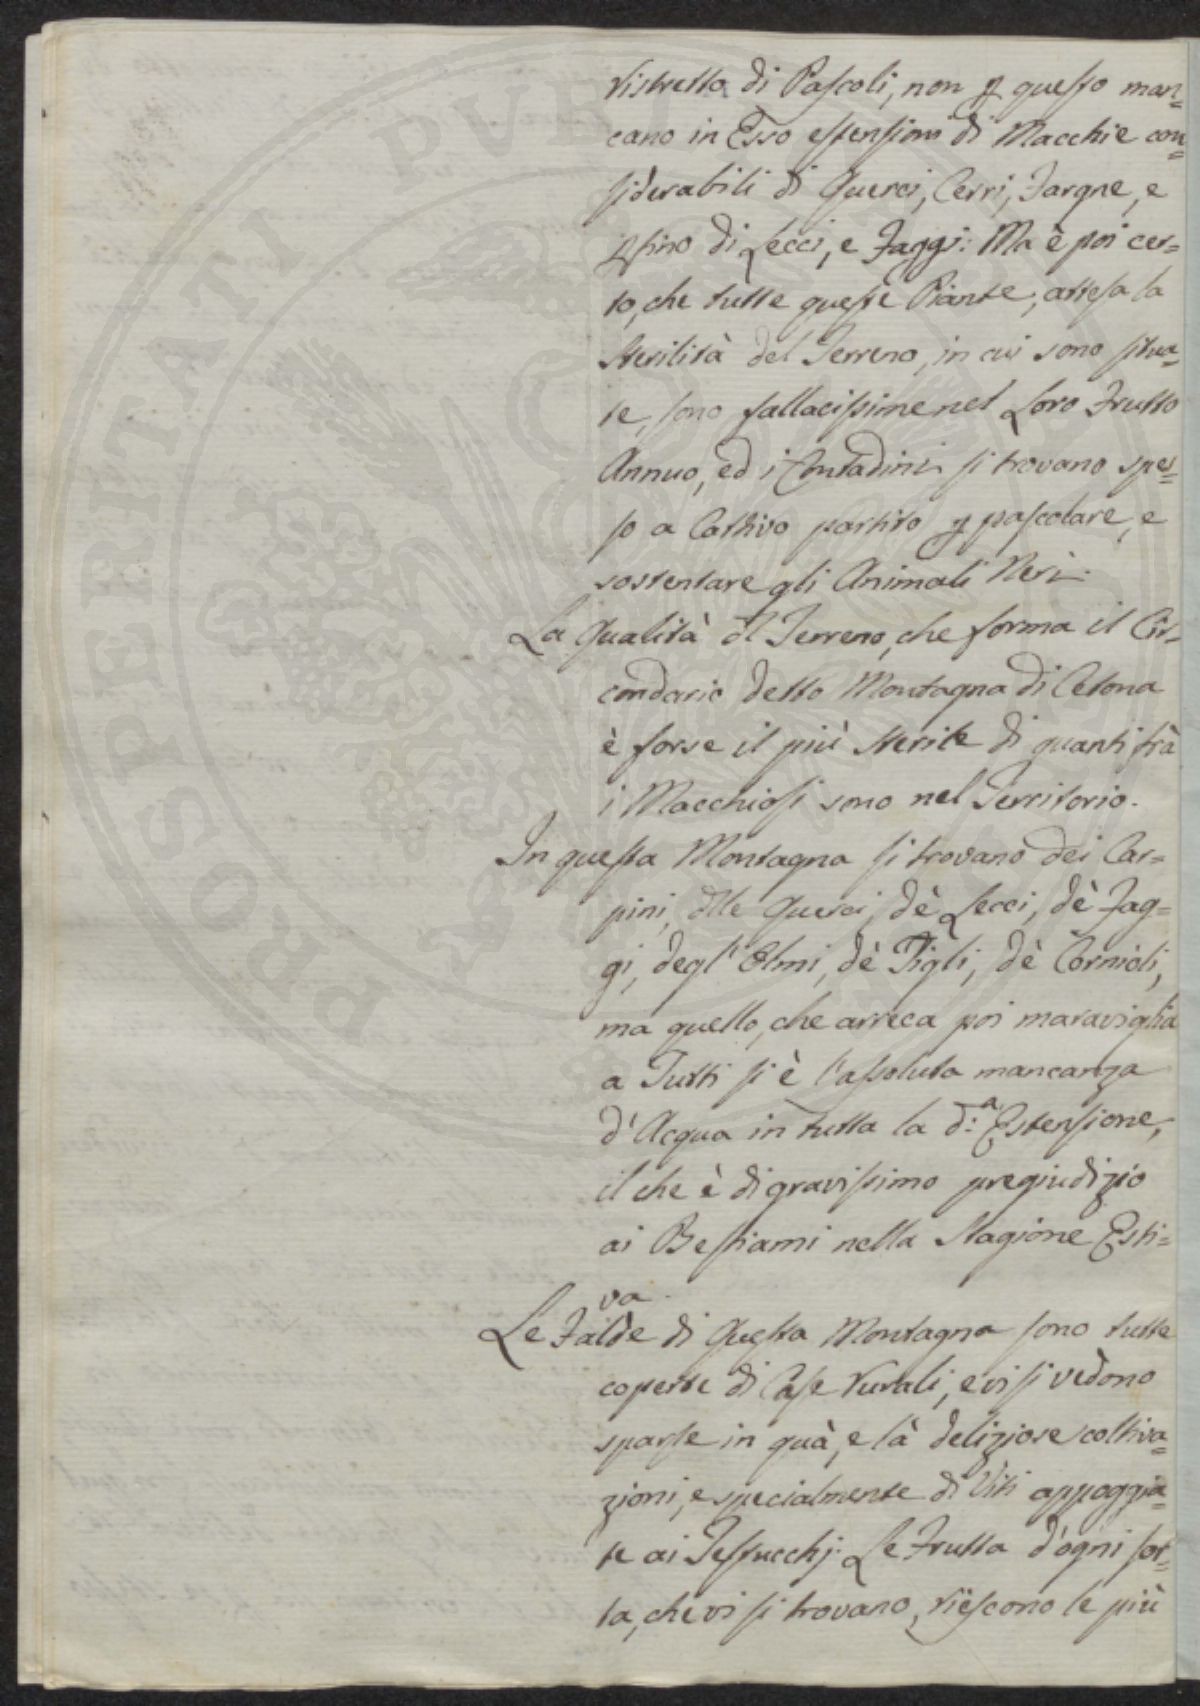 ristretto di Pascoli, non p questo man=
cano in Esso estensioni di Macchie con=
siderabili di Querci, Cerri, Fargne, e
psino di Lecci, e Faggi: Ma è poi cer=
to, che tutte queste Piante, attesa la
sterilità del Terreno, in cui sono situa=
te, sono fallacissime nel Loro Frutto
Annuo, ed i Contadini si trovano spes=
so a Cattivo partito p pascolare, e
sostentare gli Animali Neri.
La Qualità dl Terreno, che forma il Cir=
condario detto Montagna di Cetona
è forse il più sterile di quanti frà
i Macchiosi sono nel Territorio.
In questa Montagna si trovano dei Car=
pini, dlle Querci, dè Lecci, dè Fag=
gi, degl' Olmi, dè Tigli, dè Cornioli,
ma quello, che arreca poi maraviglia
a Tutti si è l'assoluta mancanza
d'Acqua in tutta la d:a Estensione,
il che è di gravissimo pregiudizio
ai Bestiami nella Stagione Esti=
va.
Le Falde di Questa Montagna sono tutte
coperte di Case Rurali, e vi si vedono
sparse in quà, e là deliziose coltiva=
zioni, e specialmente di Viti appoggia=
te ai Testucchj: Le Frutta d'ogni sor=
ta, che vi si trovano, riescono le più
PROSPERITATI PVBL